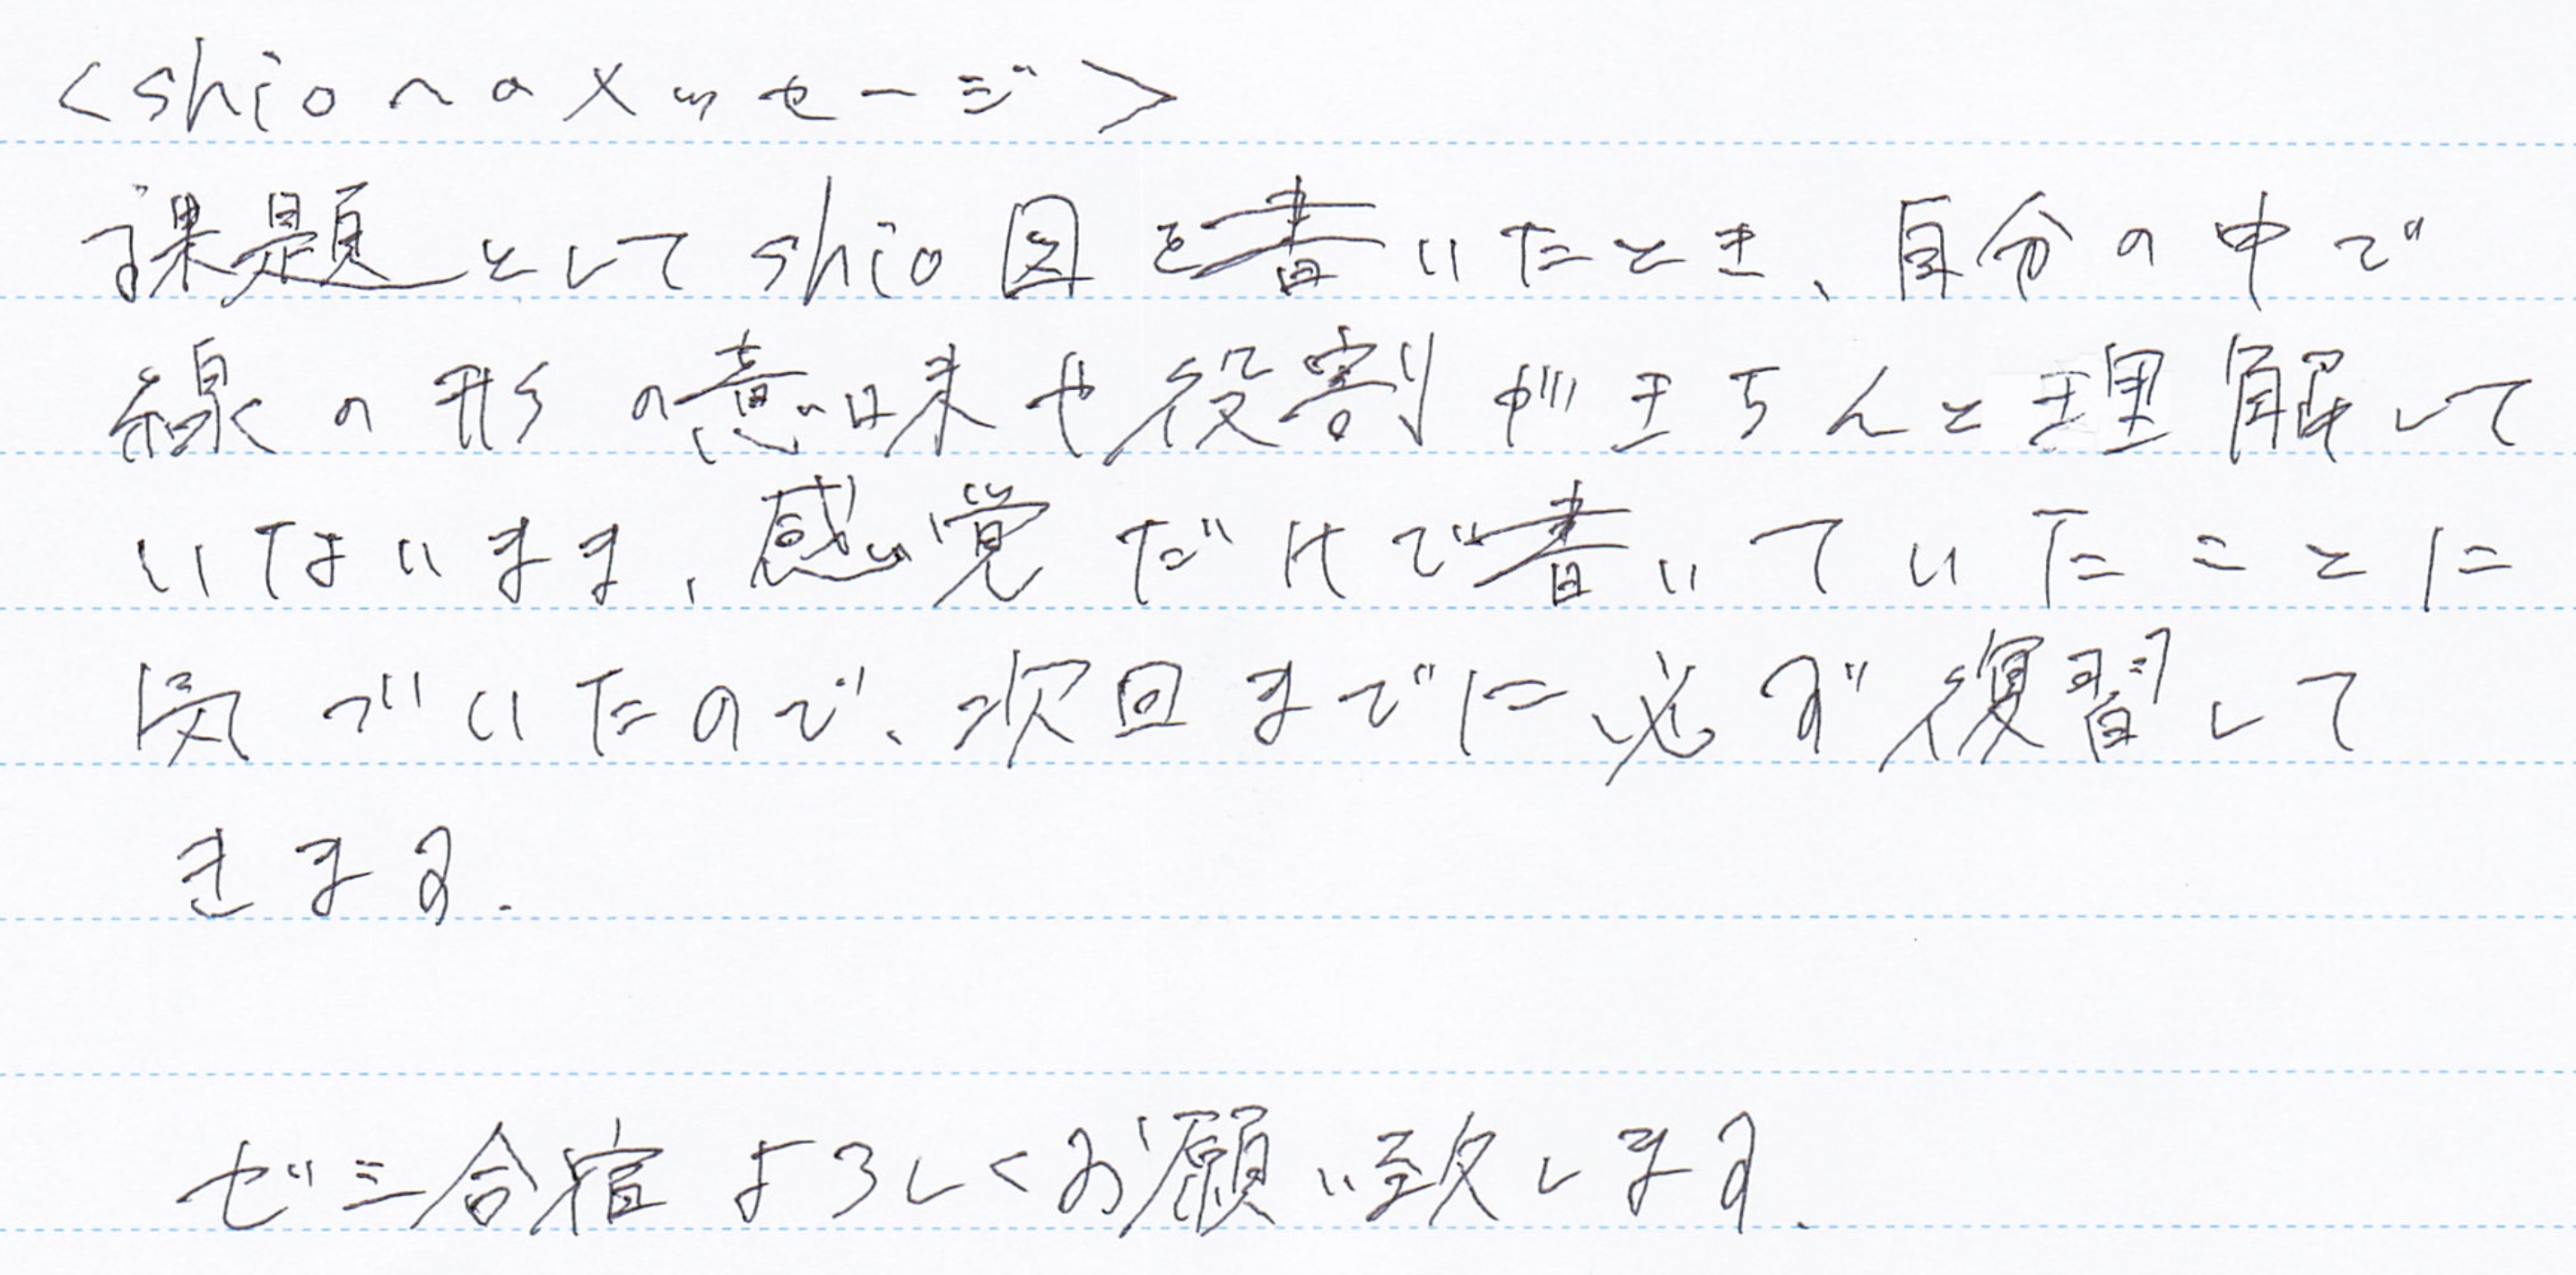 <shioへのメッセージ>
課題としてshio図を書いたとき、自分の中で
線の形の意味や役割がきちんと理解して
いないまま、感覚だけで書いていたことに
気づいたので、次回までに必ず復習して
きます.
ゼミ合宿よろしくお願い致します.